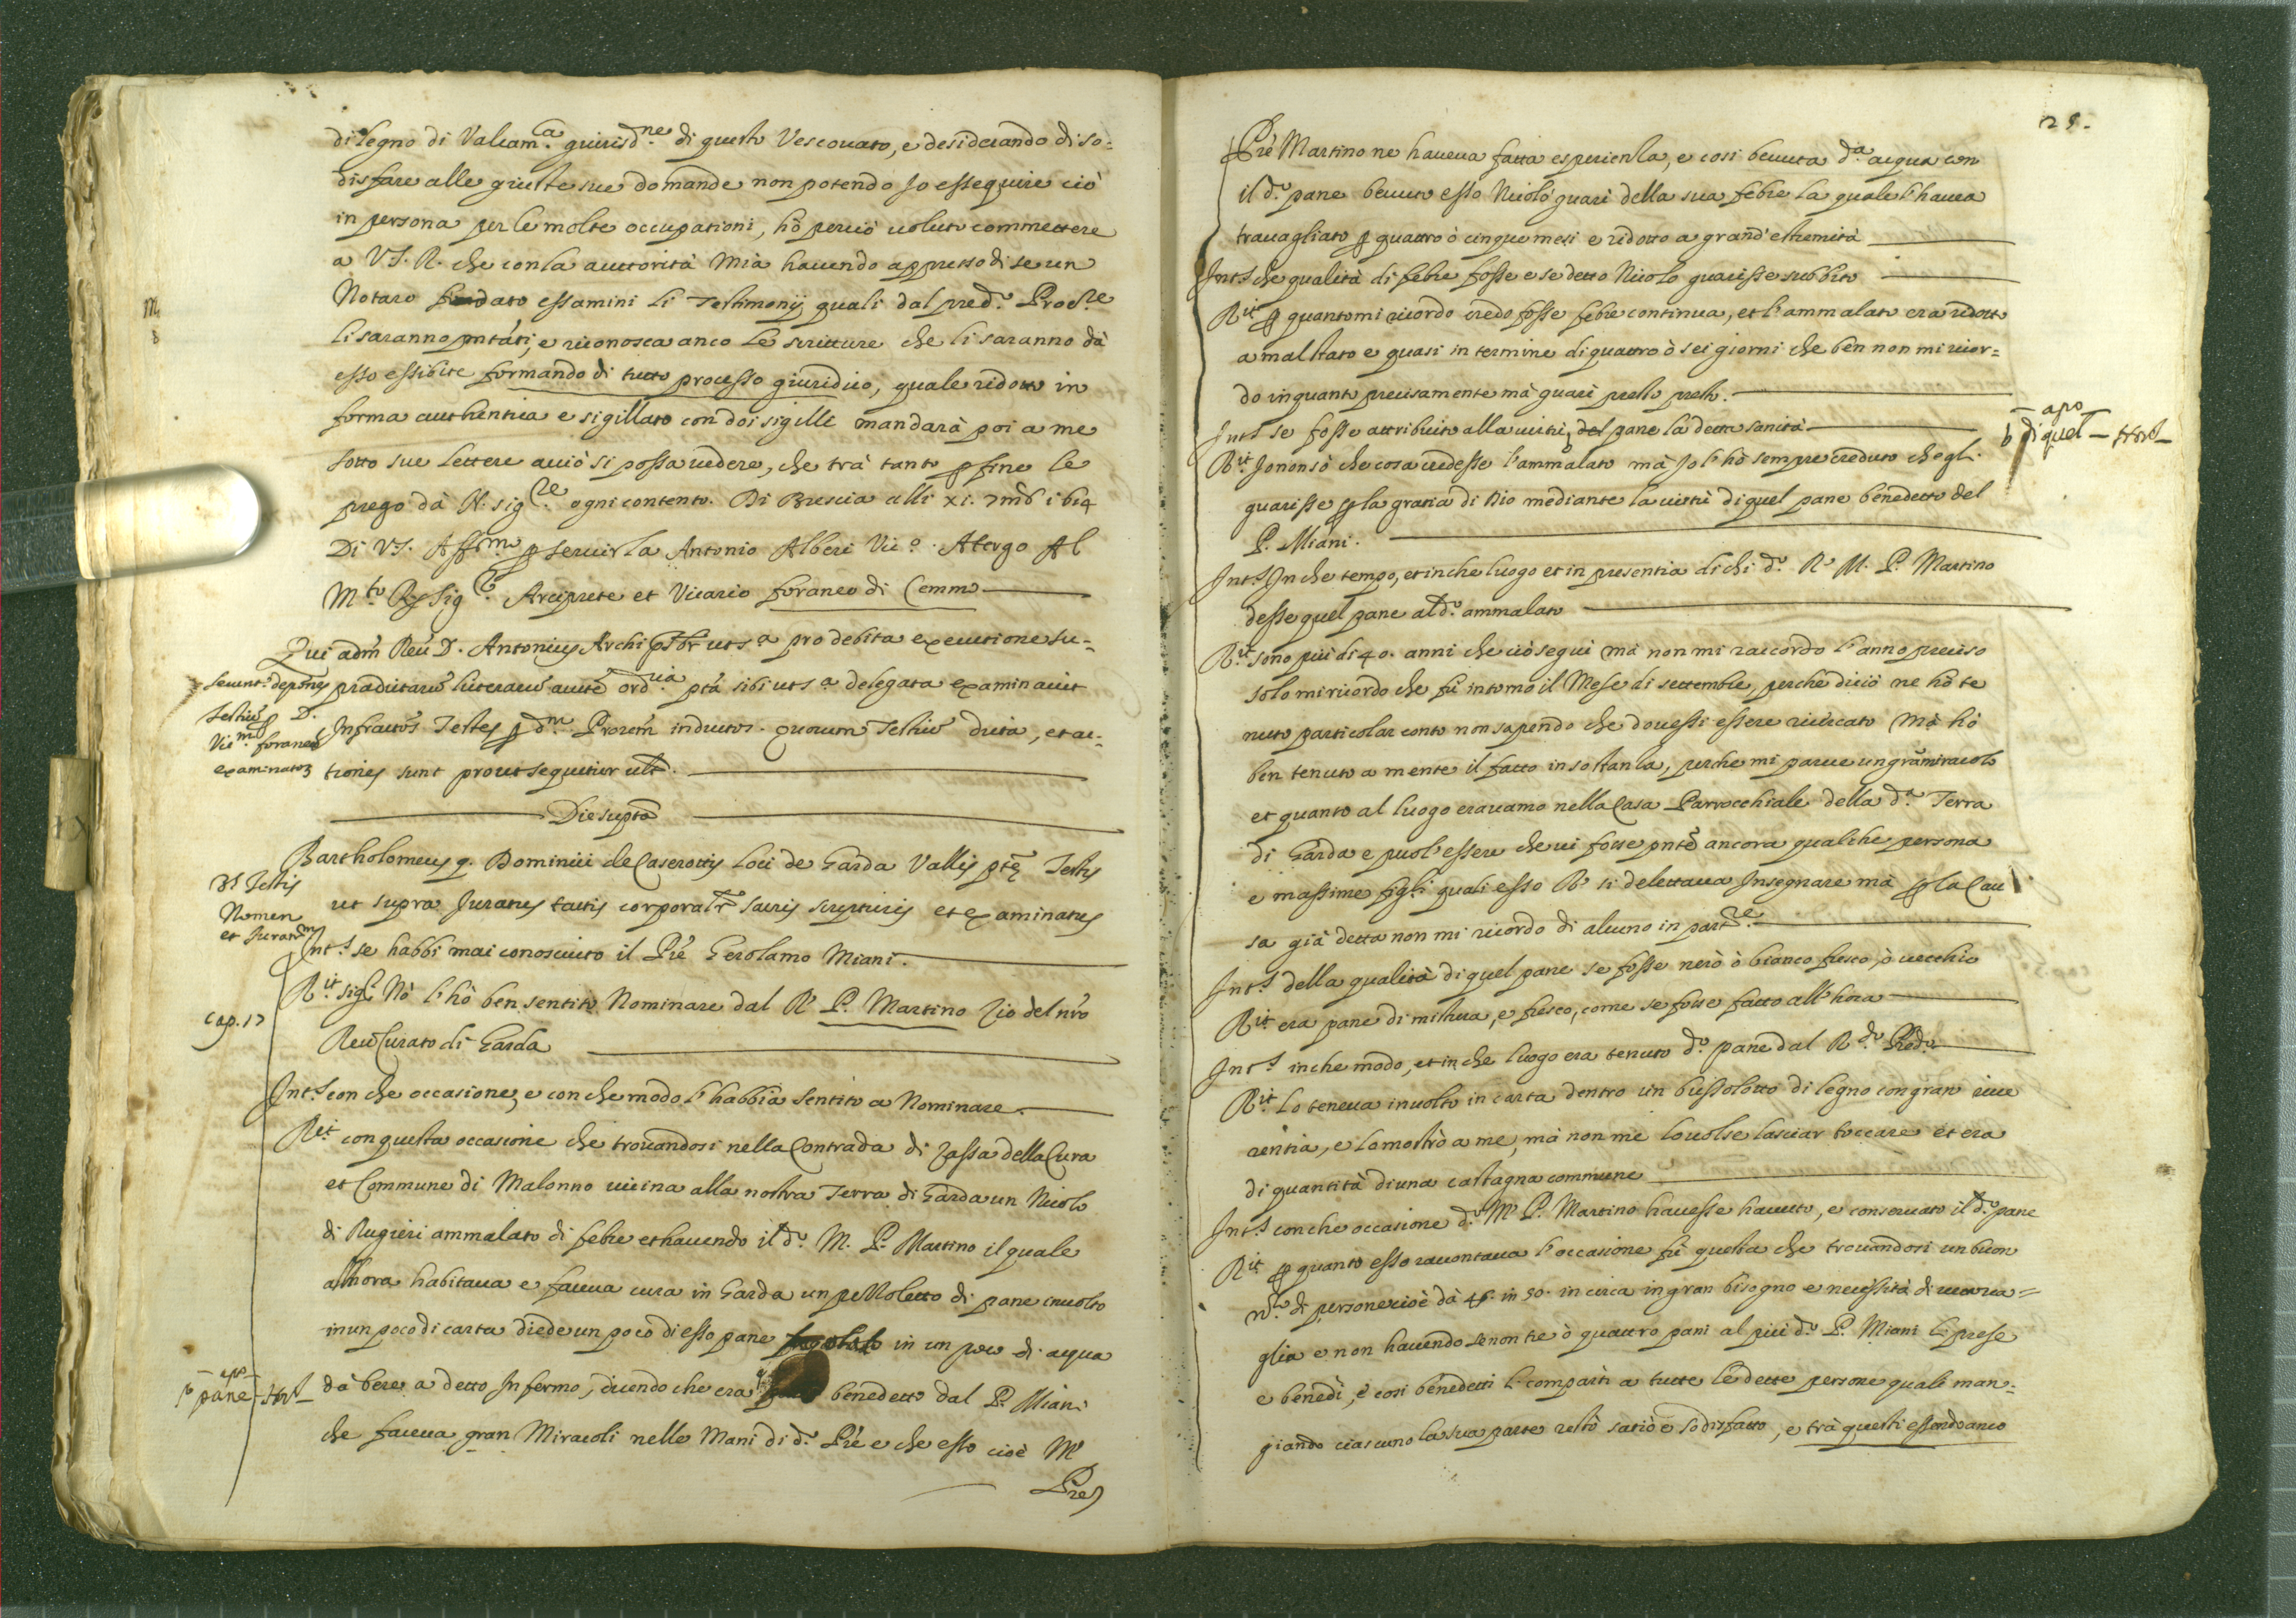 di legno di Valcam.ca giurisd.ne di questo Vescouato, e desiderando di so=
disfare alle giuste sue domande non potendo Jo essequire ciò
in persona per le molte occupationi, hò perciò uoluto commettere
a V.S. R. che con la auttorità mia hauendo appresso di se un
Notaro essamini li Testimonij quali dal pred.o Proc.re
li saranno pntati, e riconosca anco le scritture che li saranno dà
esso essibite formando di tutto processo giuridico, quale ridotto in
forma authentica e sigillato con doi sigilli mandarà poi a me
sotto sue lettere acciò si possa uedere, che trà tanto p fine le
prego dà N. sig.re ogni contento. Di Brescia alli xi. 7mb 1614
Di V.S. Aff.mo p seruirla Antonio Alberi Vic.o A tergo Al
M.to R. Sig.r Arciprete et Vicario foraneo di Cemmo
Qui adm Reu D. Antonius Archipbr ut s.a pro debita executione su=
pradictaru literaru aucte ordria ptà sibi ut s.a delegata examinauit
Infractos Testes p d.m Prorem inductos. quorum Testiu dicta, et at=
tiones sunt prout sequitur ult.
Seuunt depones
Testiu p D.
Vic.m foraneu
examinator
Die supto
Bartholomeus q. Dominici de Caserottis Loci de Garda Vallis pte Testis
ut supra Juratus tactis corporalr sacris scripturis et examinatus
Testis
Nomen
et Juratm
Int.s se habbi mai conosciuto il Prè Gerolamo Miani.
R.it sig.r Nò l'hò ben sentito Nominare dal R. P. Martino Zio del nro
Reu Curato di Garda
Cap. 17
Int.s con che occasione, e con che modo l'habbia sentito a Nominare.
R.it con questa occasione che trouandosi nella Contrada di Zassa della Cura
et Commune di Malonno uicina alla nostra Terra di Garda un Nicolo
di Rugieri ammalato di febre et hauendo il d.o M. P. Martino il quale
alhora habitaua e faceua cura in Garda un pezzoletto di pane inuolto
in un poco di carta diede un poco di esso pane in un poco di acqua
dà bere a detto Infermo, dicendo che era benedetto dal P. Miani
pane
che faceua gran Miracoli nelle Mani di d.o Prè e che esso cioè M.
Prè
25.
Prè Martino ne haueua fatta esperienza, e cosi beuuta d.a acqua con
il d.o pane beuuto esso Nicolò guarì della sua febre la quale l'hauea
trauagliato p quattro ò cinque mesi e ridotto a grand'estremità
Int.s che qualità di febre fosse e se detto Nicolo guarisse subbito
R.it p quanto mi ricordo credo fosse febre continua, et l'ammalato era ridotto
a mal stato e guasi in termine di quattro ò sei giorni che ben non mi ricor=
do in quanto precisamente mà guarì presto presto.
Int.s se fosse attribuito alla uirtù, del pane la detta sanità
di quel
R.it Jo non sò che cosa credesse l'ammalato mà Jo l'hò sempre creduto che gli
guarisse p la gratia di Dio mediante la uirtù di quel pane benedetto del
P. Miani.
Int.s In che tempo, et in che luogo et in presentia di chi d.o R. M. P. Martino
desse quel pane al d.o ammalato
R.it sono più di 40. anni che ciò seguì mà non mi raccordo l'anno preciso
solo mi ricordo che fù intorno il Mese di settembre, perche di ciò ne hò te
nuto particolar conto non sapendo che douessi essere ricercato mà hò
ben tenuto a mente il fatto in sostanza, perche mi parue un gra miracolo
et quanto al luogo erauamo nella Casa Parrocchiale della d.a Terra
di Garda e puol'essere che ui fosse pnte ancora qualche persona
e massime figli quali esso R. si delettaua Insegnare mà p la Cau
sa già detta non mi ricordo di alcuno in part.re
Int.s della qualità di quel pane se fosse nerò ò bianco fresco, ò uecchio
R.it era pane di mistura, e fresco, come se fosse fatto all'hora
Int.s in che modo, et in che luogo era tenuto d.o pane dal R.do Pred.o
R.it Lo teneua inuolto in carta dentro un bussolotto di legno con gran riue
rentia, e lo mostrò a me, mà non me lo uolse lasciar toccare et era
di quantità di una castagna commune
Int.s con che occasione d.o M. P. Martino hauesse hauuto, e conseruato il d.o pane
R.it p quanto esso raccontaua l'occasione fù questa che trouandosi un buon
n.ro di persone cioè dà 45. in 50. in circa in gran bisogno e necessità di uetoua=
glia e non hauendo se non tre ò quattro pani al più d.o P. Miani li prese
e benedì, e cosi benedetti li compartì a tutte le dette persone quali man=
giando ciascuno la sua parte restò satiò e sodisfatto, e trà questi essendo anco